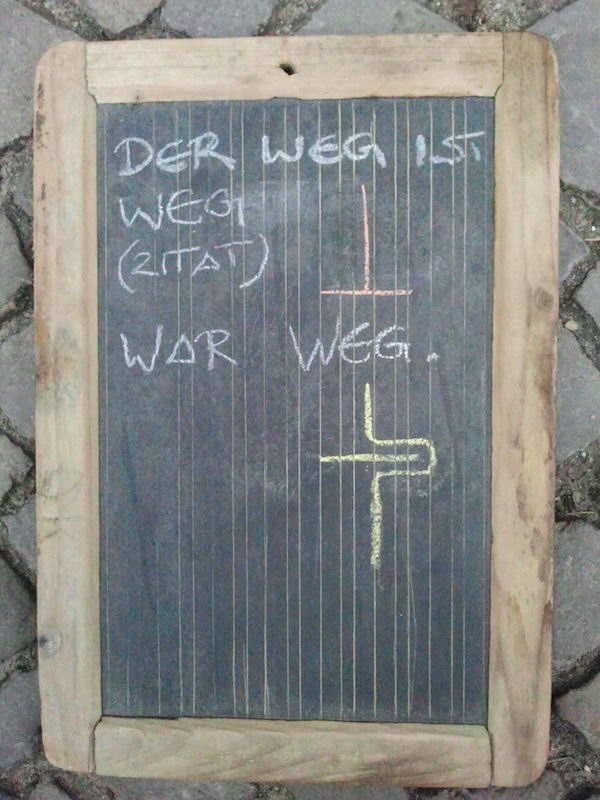 DER WEG IST
WEG
(ZITAT)
WAR WEG.